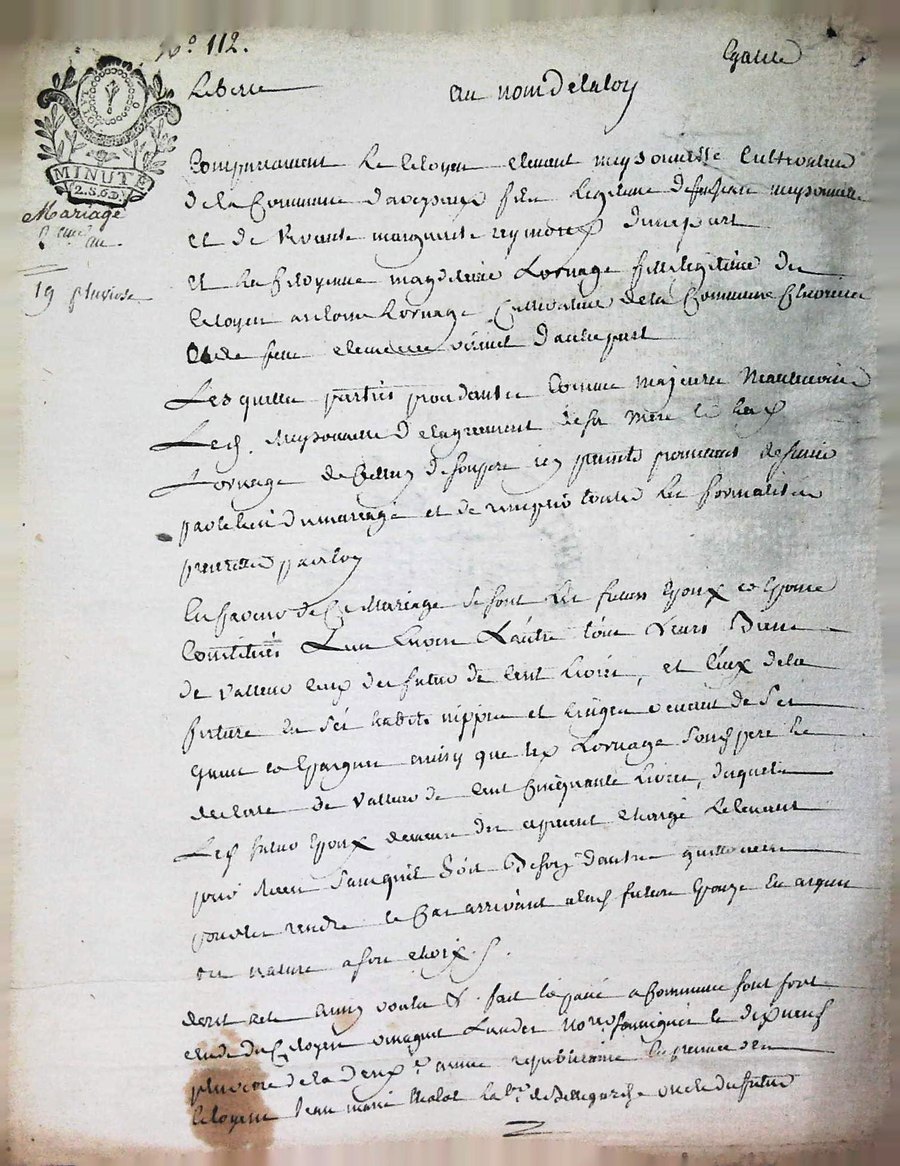 N.° 112.
Egalité
Liberté au nom de la loy
MINUTE
2.S.6D.
Mariage
19 pluviose
Comparaissent Le Citoyen clement meysonnette Cultivateur
de la Commune d'aveyzieu fils Legitime de feu jean meysonnette
et de vivante margueritte reymond d'une part
et La Citoyenne magdelaine Lornage fille legitime du
Citoyen antoine Lornage Cultivateur de la Commune
et de feue clemence d'autre part
Lesquelles parties procedante Comme majeures neanmoins
Led. meysonnette de l'agrement de sa mere et la ditte
Lornage de Celluy de son pere icy presents promettent de s'unir
par le lien du mariage et de remplir toutes les formalités
prescrittes par la loy
En faveur de Ce Mariage se sont les futurs Epoux et Epouse
Constitués L'un Envers L'autre tous Leurs Biens
de valleur Ceux du futur de Cent Livres, et Ceux de la
future en ses habits nippes et linges venant de ses
gains et Epargnes ainsy que led. Lornage son pere le
declare de valleur de Cent Cinquante Livres, duquel
Led. futur Epoux demeure des a present chargé Le Recevant
pour Reçu sans qu'il soit Besoin d'autre quittance
pour les rendre le Cas arrivant a lad. future Epouse En argent
ou nature a son choix.
dont acte ainsy voulu &. fait Et passé a Commune
etude du Citoyen Lundet Notre soussigné le dixneuf
pluviose de la deux.e année republicaine En presence des
Citoyens Jean marie de Bellegarde oncle du futur